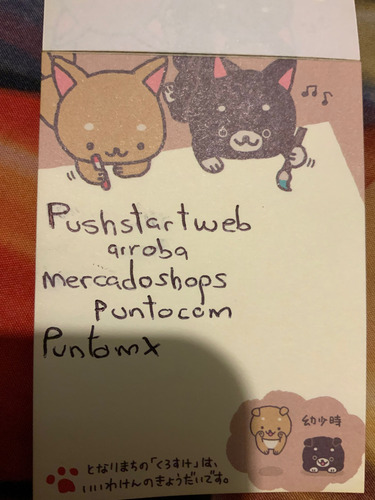 Pushstartweb
arroba
mercadoshops
Puntocom
Puntomx
幼少時
となりまちの「くろすけ」は、
いいわけんのきょうだいです。